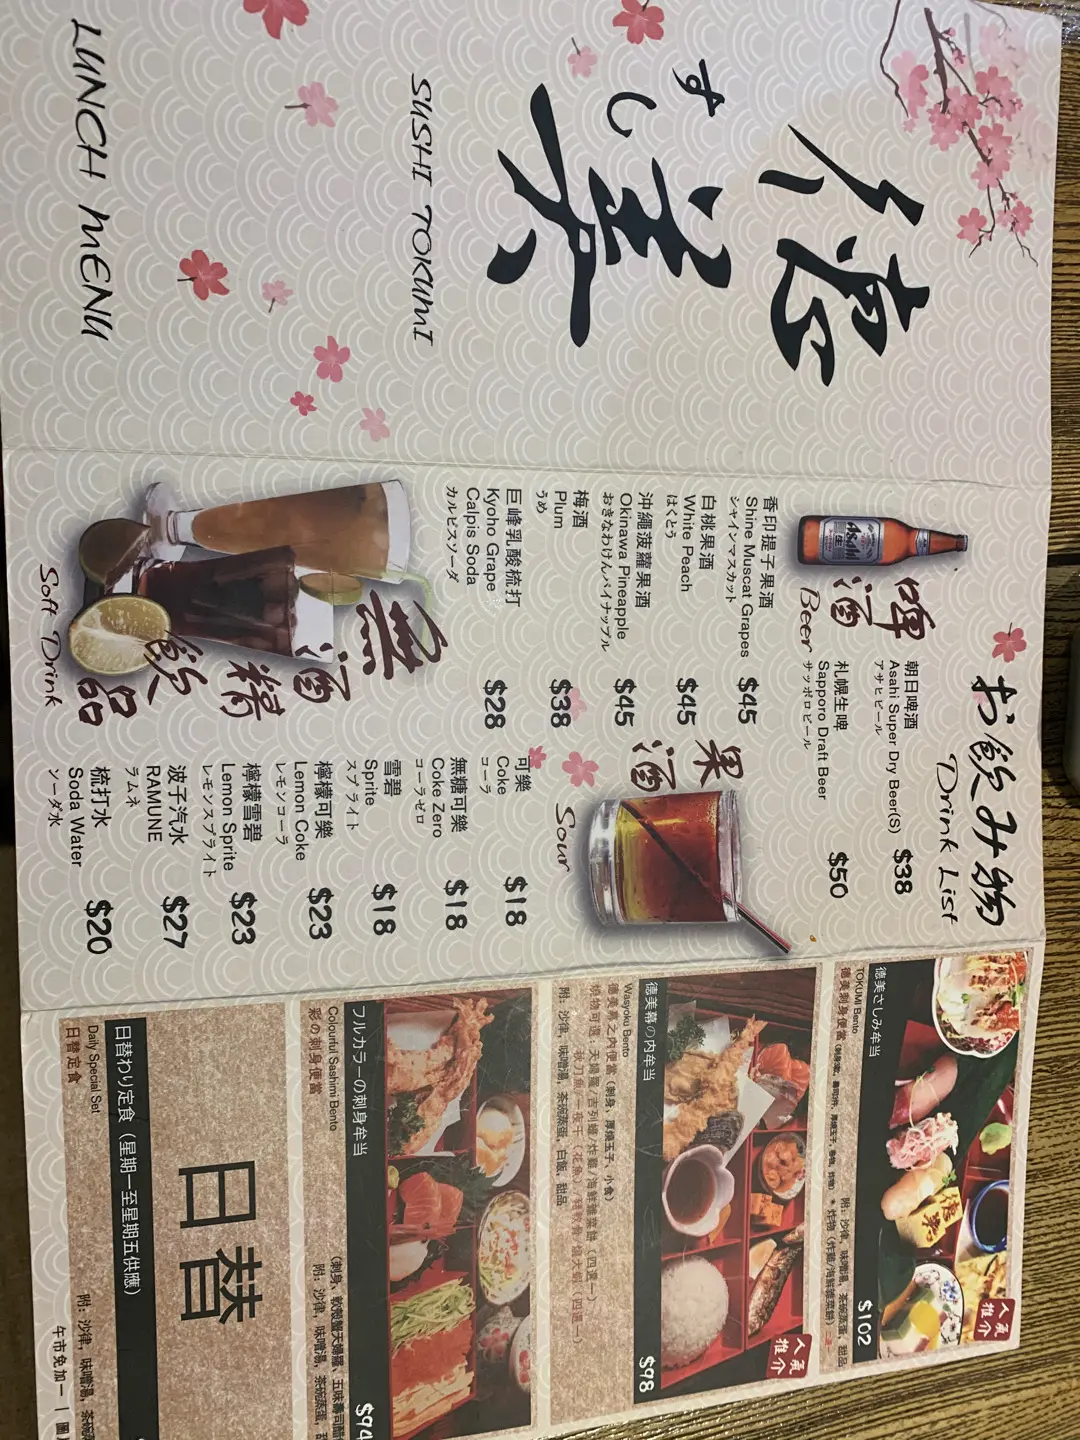 德美
すし
SUSHI TOKUMI
LUNCH MENU
お飲み物
Drink List
啤酒
Beer
Asahi
朝日啤酒
Asahi Super Dry Beer(S)
アサヒビール
$38
札幌生啤
Sapporo Draft Beer
サッポロビール
$50
果酒
Sour
香印提子果酒
Shine Muscat Grapes
シャインマスカット
$45
白桃果酒
White Peach
はくとう
$45
沖繩菠蘿果酒
Okinawa Pineapple
おきなわけんパイナップル
$45
梅酒
Plum
うめ
$38
巨峰乳酸梳打
Kyoho Grape
Calpis Soda
カルピスソーダ
$28
無酒精飲品
Soft Drink
可樂
Coke
コーラ
$18
無糖可樂
Coke Zero
コーラゼロ
$18
雪碧
Sprite
スプライト
$18
檸檬可樂
Lemon Coke
レモンコーラ
$23
檸檬雪碧
Lemon Sprite
レモンスプライト
$23
波子汽水
RAMUNE
ラムネ
$27
梳打水
Soda Water
ソーダ水
$20
人氣推介
德美さしみ弁当
$102
TOKUMI Bento
附: 沙律, 味噌湯, 茶碗蒸蛋, 甜品
德美刺身便當
人氣推介
德美幕の内弁当
$98
Wasyoku Bento
德美幕之內便當 (刺身、厚燒玉子、小食)
附: 沙律, 味噌湯, 茶碗蒸蛋, 白飯, 甜品
フルカラーの刺身弁当
$94
Colourful Sashimi Bento
彩の刺身便當
附: 沙律, 味噌湯, 茶碗蒸蛋,
日替
日替わり定食 (星期一至星期五供應)
Daily Special Set
附: 沙律, 味噌湯, 茶碗
日替定食
午市免加一